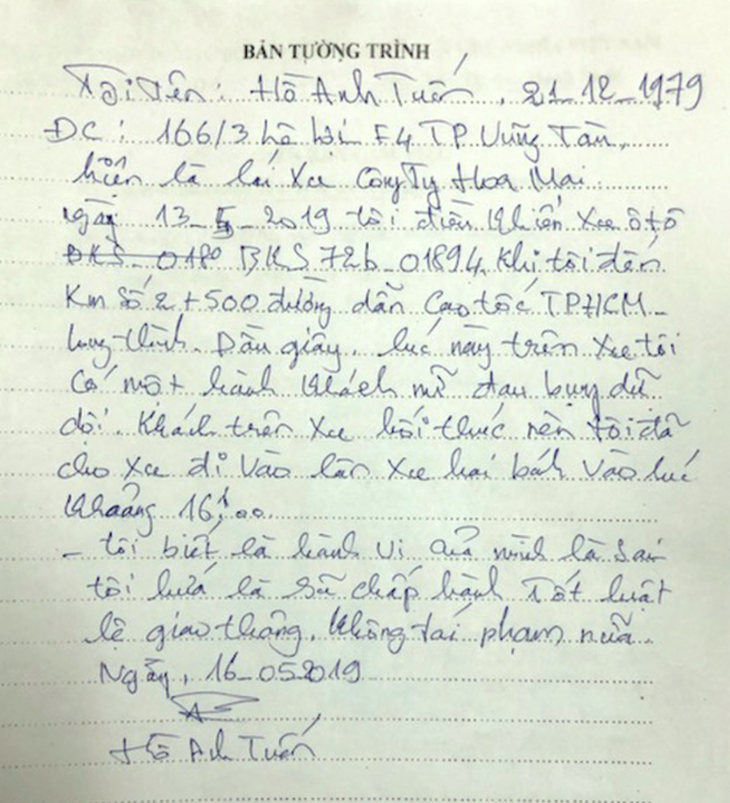 BẢN TƯỜNG TRÌNH
Tôi tên: Hồ Anh Tuấn, 21_12_1979
ĐC: 166/3 F4 TP Vũng Tàu.
hiện là lái xe Công Ty Hoa Mai.
ngày 13_5_2019 tôi điều khiển xe ô tô
BKS_0180 BKS 72b_01894. Khi tôi đến
Km Số 2+500 đường dẫn Cao tốc TPHCM_
Long thành. Dầu giây. lúc này trên xe tôi
Có một hành khách nữ đau bụng dữ
dội. Khách trên xe hối thúc nên tôi đã
cho xe đi vào làn xe hai bánh vào lúc
khoảng 16h00
_ tôi biết là hành vi của mình là sai
tôi hứa là sẽ chấp hành tốt luật
lệ giao thông. Không tái phạm nữa.
Ngày, 16_052019
Hồ Anh Tuấn